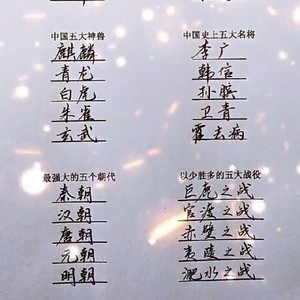 中国五大神兽
麒麟
青龙
白虎
朱雀
玄武
中国史上五大名将
李广
韩信
孙膑
卫青
霍去病
最强大的五个朝代
秦朝
汉朝
唐朝
元朝
明朝
以少胜多的五大战役
巨鹿之战
官渡之战
赤壁之战
夷陵之战
淝水之战